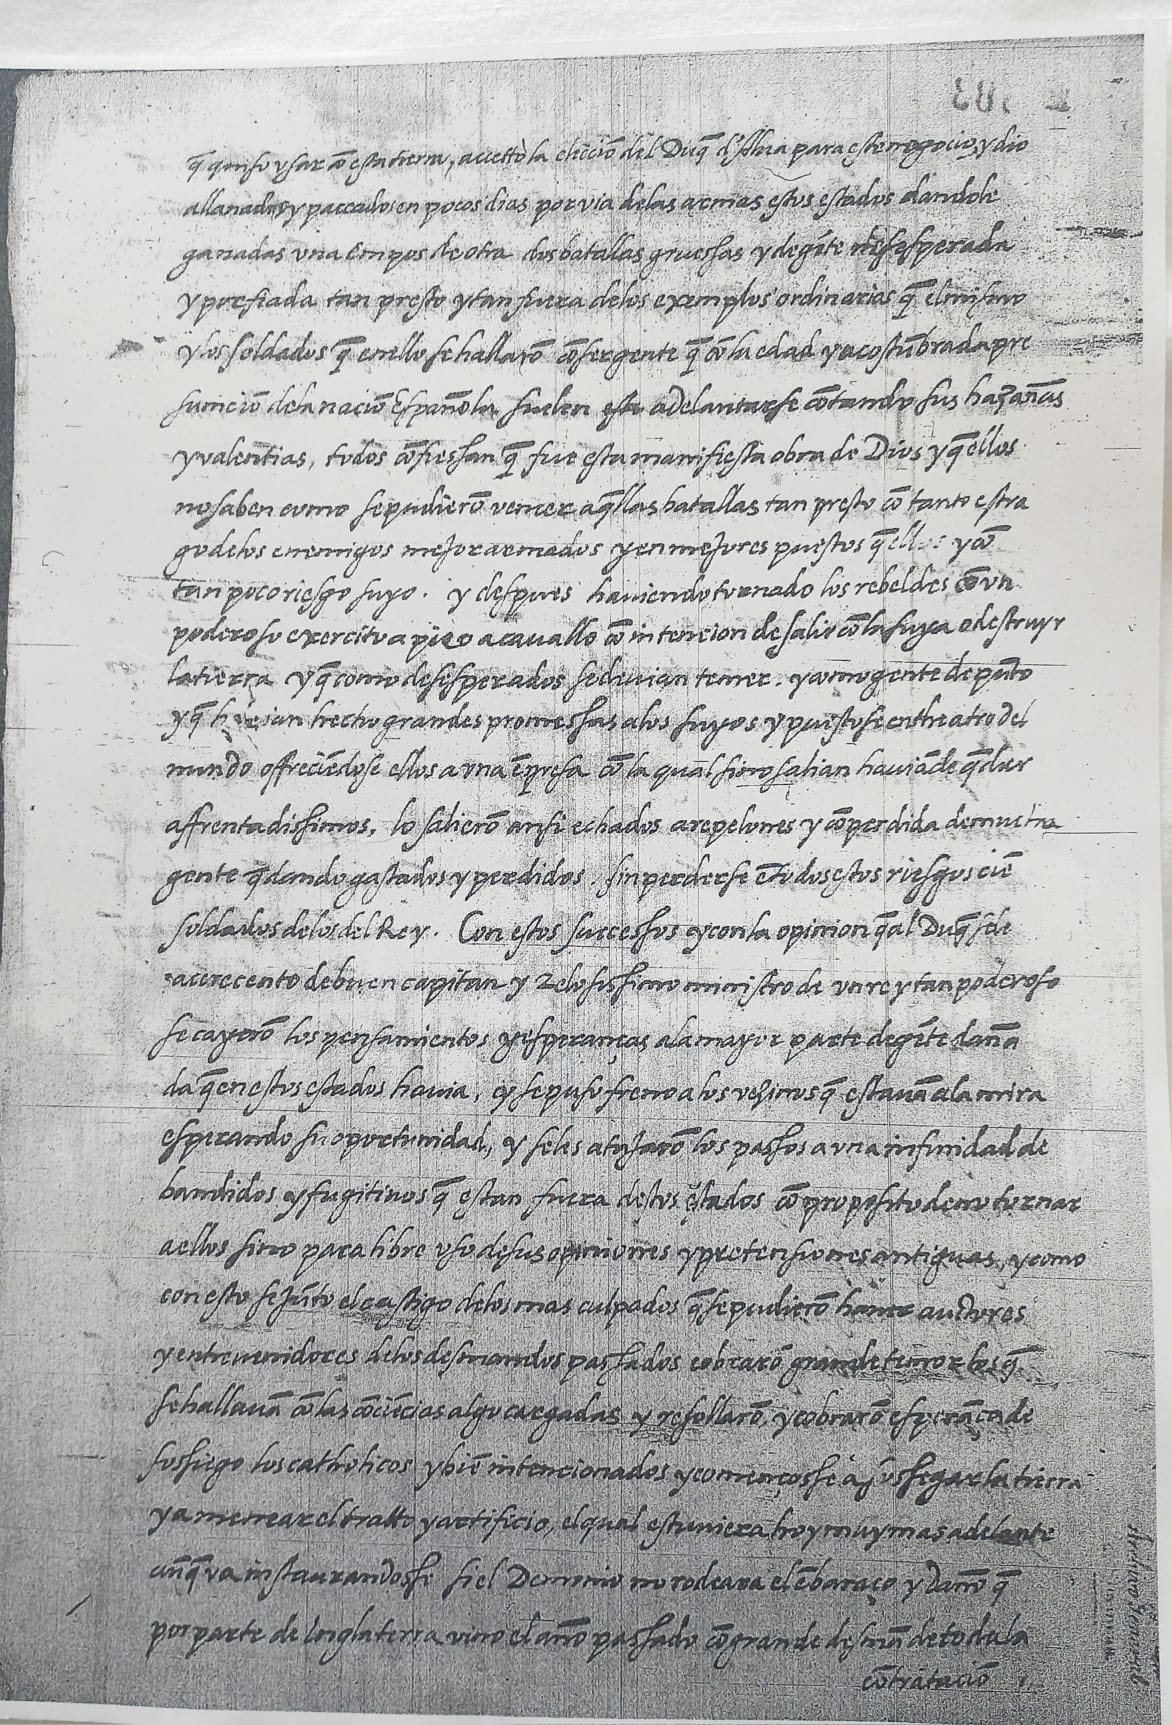 q̃ quiso usar cõ esta tierra, accettò la electiõ del Duq̃ d'Alua para este negocio, y dio
allanados y paccados en pocos dias por via de las armas estos estados dandole
ganadas vna en pos de otra dos batallas gruessas y de gẽte desesperada
y porfiada tan presto y tan fuera de los exemplos ordinarios q̃ el mismo
y los soldados q̃ en ello se hallarõ cõ ser gente q̃ cõ la edad y acostũbrada pre
sumciõ de la naciõ Española suelen adelantarse cõtando sus hazañas
y valentias, todos cõfiessan q̃ fue esta manifiesta obra de Dios y q̃ ellos
no saben como se pudierõ vencer aq̃llas batallas tan presto cõ tanto estra
go de los enemigos mejor armados y en mejores puestos q̃ ellos y cõ
tan poco riesgo suyo. y despues hauiendo tornado los rebeldes cõ vn
poderoso exercito a pie o a cauallo cõ intencion de salir cõ la suya o destruyr
la tierra y q̃ como desesperados se deuian temer. y como gente de pũto
y q̃ hauian hecho grandes promessas a los suyos y puestose en theatro del
mundo offreciẽdose ellos a vna ẽpresa cõ la qual si no salian hauiã de q̃dar
affrentadissimos, lo salierõ ansi echados a repelones y cõ perdida de mucha
gente q̃dando gastados y perdidos. sin perderse ẽ todos estos riesgos ciẽ
soldados de los del Rey. Con estos sucessos y con la opinion q̃ al Duq̃ se le
acrecento de buen capitan y zelosissimo ministro de vn rey tan poderoso
se cayerõ los pensamientos y esperanças a la mayor parte de gẽte daña
da q̃ en estos estados hauia, y se puso freno a los vezinos q̃ estauã a la mira
esperando su oportunidad, y se les atajarõ los passos a vna infinidad de
bandidos y fugitiuos q̃ estan fuera destos estados cõ proposito de no tornar
a ellos sino para libre vso de sus opiniones y pretensiones antiguas, y como
con esto se jũto el castigo de los mas culpados q̃ se pudierõ hauer auctores
y entreuenidores de los desmandos passados cobrarõ grande temor los q̃
se hallauã cõ las cõciẽcias algo cargadas y resollarõ, y cobrarõ esperãça de
sossiego los catholicos y biẽ intencionados y començosse a sossegar la tierra
y a menear el tratto y artificio, el qual estuuiera hoy muy mas adelante
aũq̃ va instaurandosse si el Demonio no rodeara el ẽbaraço y daño q̃
por parte de Inglaterra vino el año passado cõ grande desmã de toda la
cõtrataciõ